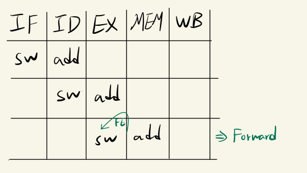 IF ID EX MEM WB
sw add
sw add
FU
sw add ⇒ Forward